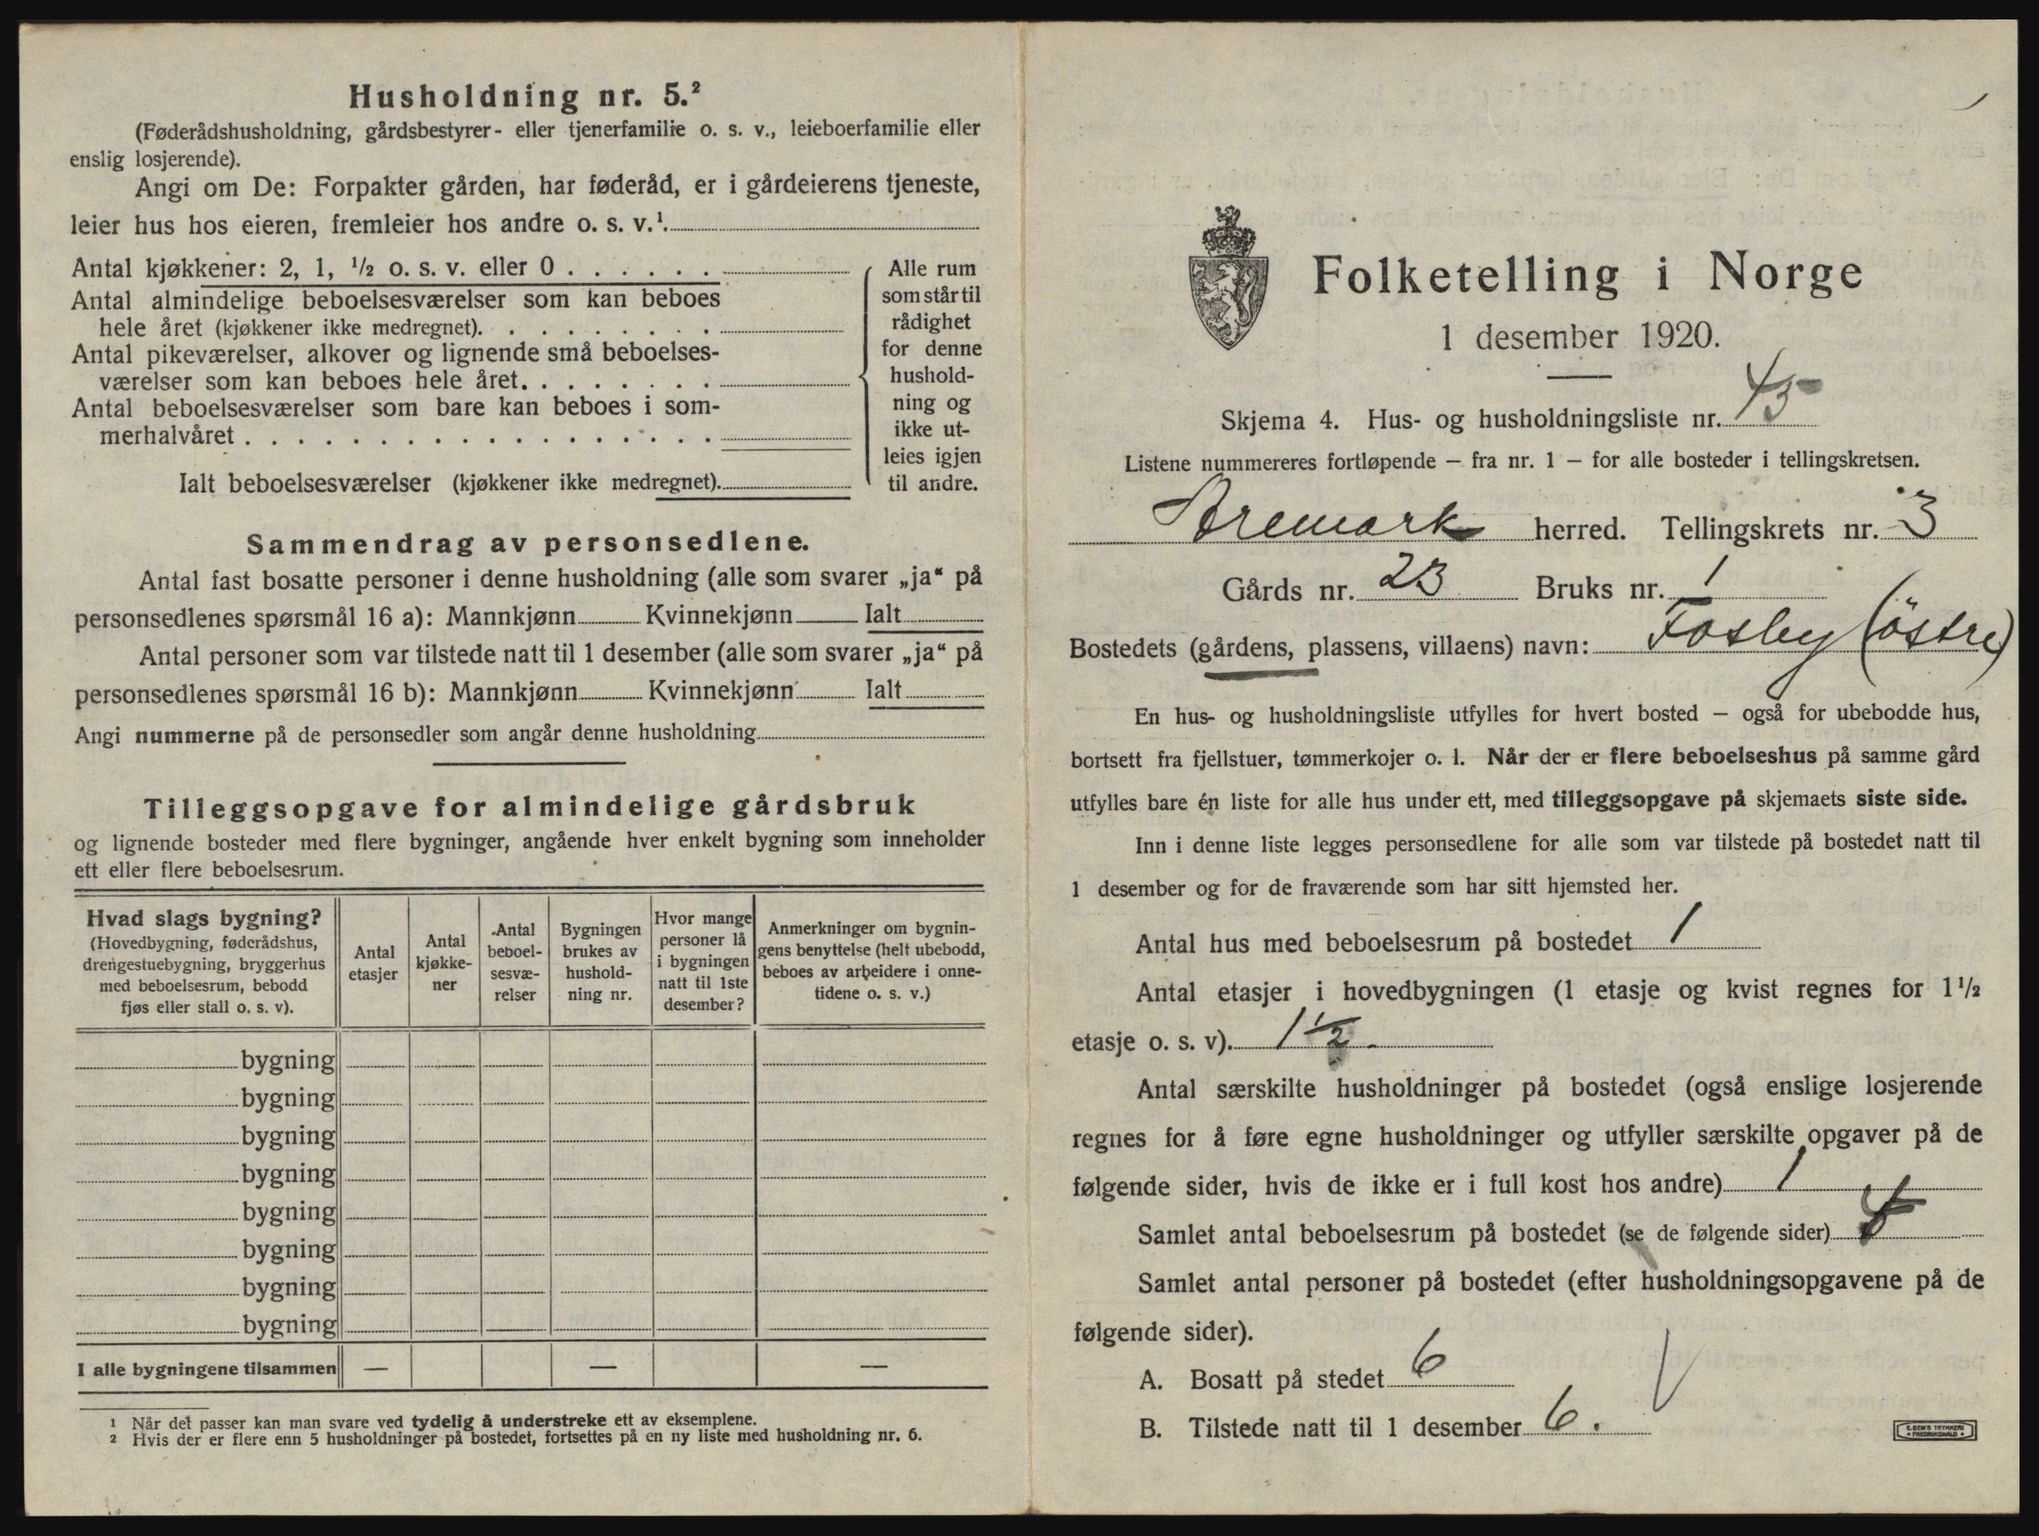 Husholdning nr. 5.²
(Føderådshusholdning, gårdsbestyrer- eller tjenerfamilie o. s. v., leieboerfamilie eller
enslig losjerende).
Angi om De: Forpakter gården, har føderåd, er i gårdeierens tjeneste,
leier hus hos eieren, fremleier hos andre o. s. v.¹.
Antal kjøkkener: 2, 1, ½ o. s. v. eller 0 . . . . . .
Antal almindelige beboelsesværelser som kan beboes
hele året (kjøkkener ikke medregnet). . . . . . . . .
Antal pikeværelser, alkover og lignende små beboelses-
værelser som kan beboes hele året. . . . . . . .
Antal beboelsesværelser som bare kan beboes i som-
merhalvåret . . . . . . . . . . . . . . . . . .
Ialt beboelsesværelser (kjøkkener ikke medregnet).
Alle rum
som står til
rådighet
for denne
hushold-
ning og
ikke ut-
leies igjen
til andre.
Sammendrag av personsedlene.
Antal fast bosatte personer i denne husholdning (alle som svarer „ja“ på
personsedlenes spørsmål 16 a): Mannkjønn Kvinnekjønn Ialt
Antal personer som var tilstede natt til 1 desember (alle som svarer „ja“ på
personsedlenes spørsmål 16 b): Mannkjønn Kvinnekjønn Ialt
Angi nummerne på de personsedler som angår denne husholdning
Tilleggsopgave for almindelige gårdsbruk
og lignende bosteder med flere bygninger, angående hver enkelt bygning som inneholder
ett eller flere beboelsesrum.
Hvad slags bygning?
(Hovedbygning, føderådshus,
drengestuebygning, bryggerhus
med beboelsesrum, bebodd
fjøs eller stall o. s. v).
Antal
etasjer
Antal
kjøkke-
ner
Antal
beboel-
sesvæ-
relser
Bygningen
brukes av
hushold-
ning nr.
Hvor mange
personer lå
i bygningen
natt til 1ste
desember?
Anmerkninger om bygnin-
gens benyttelse (helt ubebodd,
beboes av arbeidere i onne-
tidene o. s. v.)
bygning
bygning
bygning
bygning
bygning
bygning
bygning
bygning
I alle bygningene tilsammen — — —
¹ Når det passer kan man svare ved tydelig å understreke ett av eksemplene.
² Hvis der er flere enn 5 husholdninger på bostedet, fortsettes på en ny liste med husholdning nr. 6.
Folketelling i Norge
1 desember 1920.
Skjema 4. Hus- og husholdningsliste nr. 45
Listene nummereres fortløpende — fra nr. 1 — for alle bosteder i tellingskretsen.
Aremark herred. Tellingskrets nr. 3
Gårds nr. 23 Bruks nr. 1
Bostedets (gårdens, plassens, villaens) navn: Fosby (østre)
En hus- og husholdningsliste utfylles for hvert bosted — også for ubebodde hus,
bortsett fra fjellstuer, tømmerkojer o. l. Når der er flere beboelseshus på samme gård
utfylles bare én liste for alle hus under ett, med tilleggsopgave på skjemaets siste side.
Inn i denne liste legges personsedlene for alle som var tilstede på bostedet natt til
1 desember og for de fraværende som har sitt hjemsted her.
Antal hus med beboelsesrum på bostedet 1
Antal etasjer i hovedbygningen (1 etasje og kvist regnes for 1½
etasje o. s. v). 1½.
Antal særskilte husholdninger på bostedet (også enslige losjerende
regnes for å føre egne husholdninger og utfyller særskilte opgaver på de
følgende sider, hvis de ikke er i full kost hos andre) 1
Samlet antal beboelsesrum på bostedet (se de følgende sider)
Samlet antal personer på bostedet (efter husholdningsopgavene på de
følgende sider).
A. Bosatt på stedet 6
B. Tilstede natt til 1 desember 6.